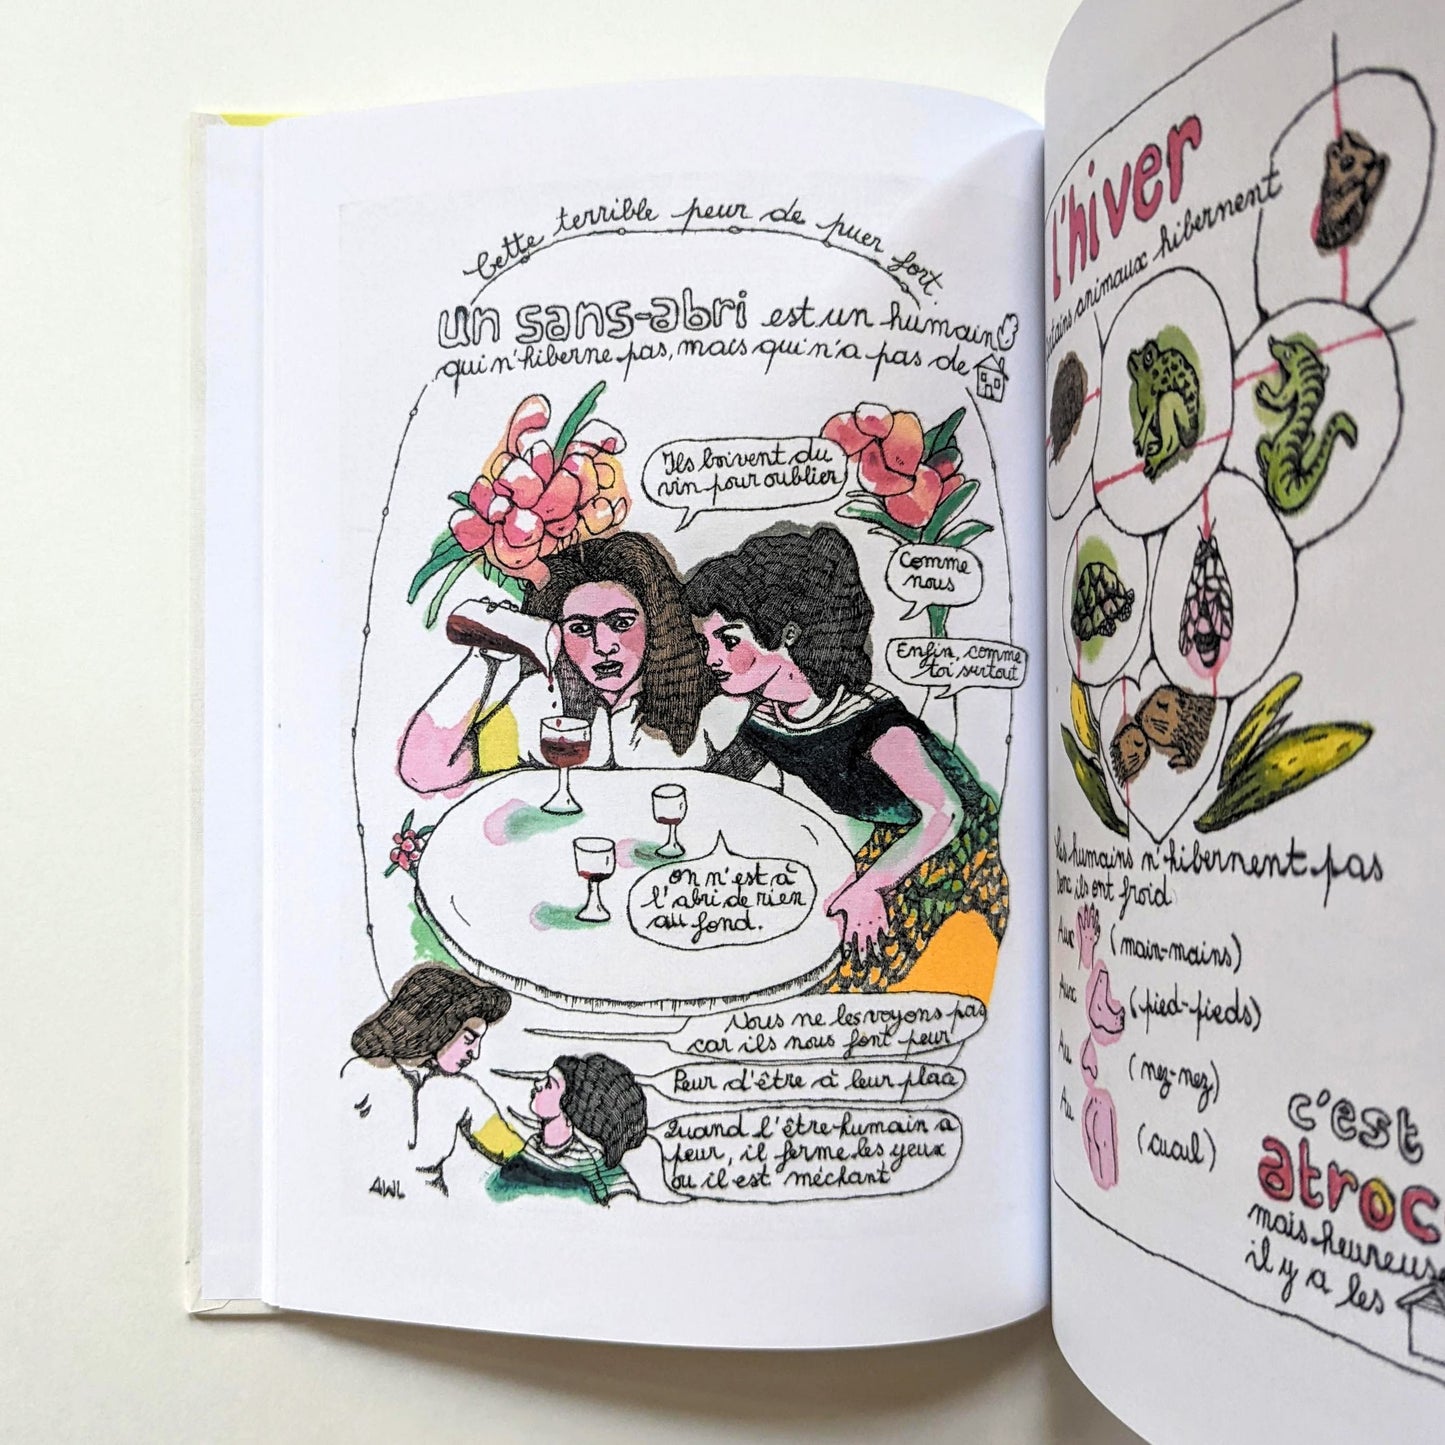 Cette terrible peur de puer fort.
un sans-abri est un humain
qui n'hiberne pas, mais qui n'a pas de
Ils boivent du
vin pour oublier
Comme
nous
Enfin, comme
toi surtout
on n'est à
l'abri de rien
au fond.
Nous ne les voyons pas
car ils nous font peur
Peur d'être à leur place
Quand l'être-humain a
peur, il ferme les yeux
ou il est méchant
AWL
l'hiver
animaux hibernent
Les humains n'hibernent pas
Donc ils ont froid
Aux (main-mains)
Aux (pied-pieds)
Au (nez-nez)
Au (cucul)
c'est
atroc
mais heureuse
il y a les